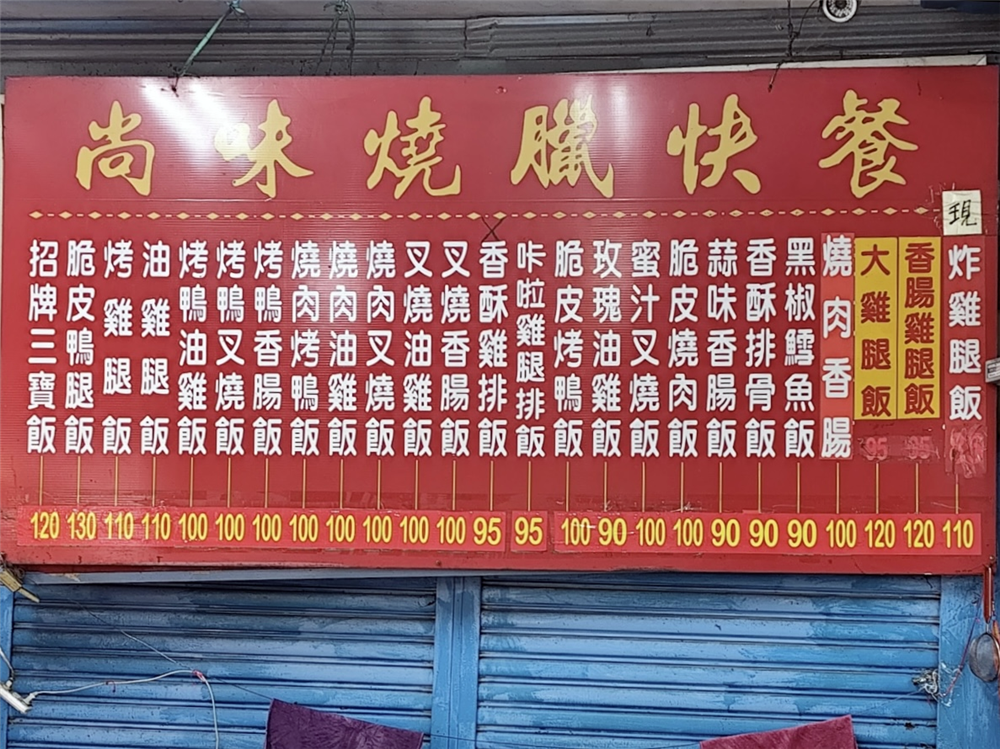 尚味燒臘快餐
招牌三寶飯 120
脆皮鴨腿飯 130
烤雞腿飯 110
油雞腿飯 110
烤鴨油雞飯 100
烤鴨叉燒飯 100
烤鴨香腸飯 100
燒肉烤鴨飯 100
燒肉油雞飯 100
燒肉叉燒飯 100
叉燒油雞飯 100
叉燒香腸飯 100
香酥雞排飯 95
咔啦雞腿排飯 95
脆皮烤鴨飯 100
玫瑰油雞飯 90
蜜汁叉燒飯 100
脆皮燒肉飯 100
蒜味香腸飯 90
香酥排骨飯 90
黑椒鱈魚飯 90
燒肉香腸 100
大雞腿飯 95 120
香腸雞腿飯 95 120
現炸雞腿飯 110